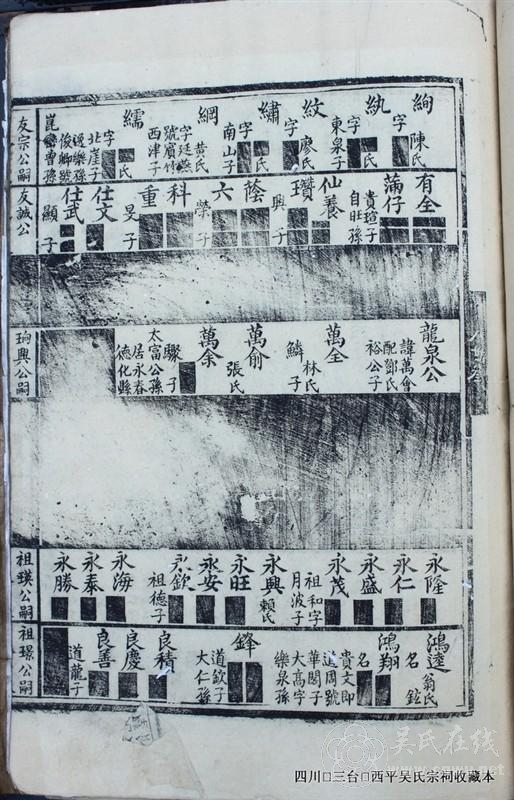 絢
陳氏
字
紈
字
東泉子
紋
廖氏
字
繡
字
南山子
綱
黄氏
字廷燕
號賓竹
西津子
繻
氏
字
北崖子
邊樂孫
俊卿號
崑巒曾孫
友宗公嗣
有全
蒲仔
貴瑄子
自旺孫
仙養
瓚
興子
蔭
六
榮子
科
重
旻子
仕文
仕武
顯子
友誠公
龍泉公
諱萬會
配鄧氏
裕公子
萬全
林氏
鱗子
萬俞
張氏
萬余
驟子
太富公孫
居永春
德化縣
珦興公嗣
永隆
永仁
永盛
永茂
祖和字
月波子
永興
賴氏
永旺
永安
永欽
祖德子
永海
永泰
永勝
祖瑛公嗣
鴻逵
翁氏
名鈜
鴻翔
名
貴文即
道周號
華閣子
大高字
樂泉孫
鋒
道欽子
大仁孫
良積
良慶
良善
道龍子
祖璟公嗣
吴氏在线
四川□三台□西平吴氏宗祠收藏本